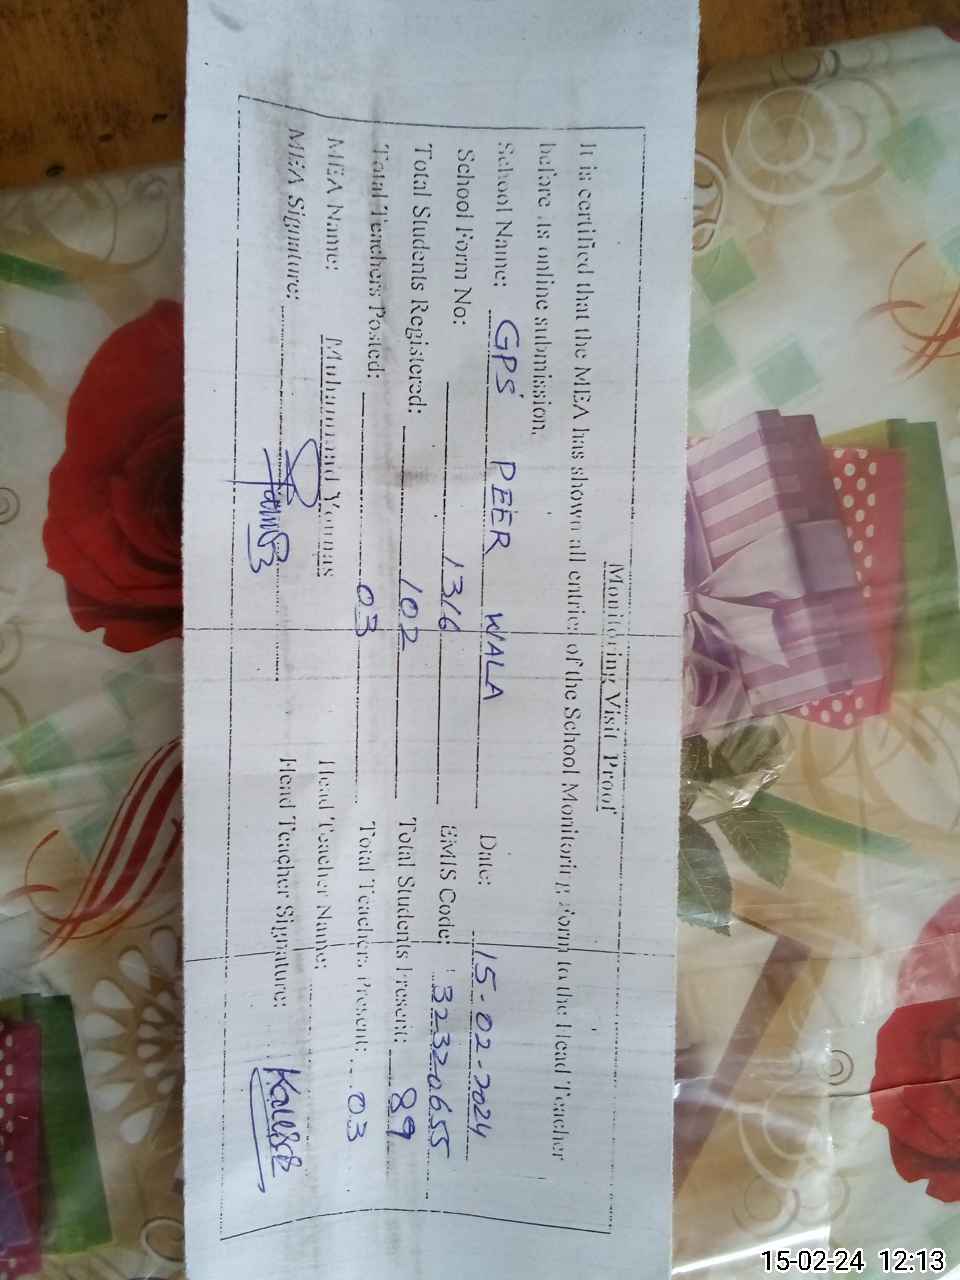 Monitoring Visit Proof
It is certified that the MEA has shown all entries of the School Monitoring Form to the Head Teacher
before its online submission.
School Name: GPS PEER WALA Date: 15-02-2024
School Form No: 1316 EMIS Code: 32320655
Total Students Registered: 102 Total Students Present: 89
Total Teachers Posted: 03 Total Teachers Present: 03
MEA Name: Muhammad Younas Head Teacher Name:
MEA Signature: Head Teacher Signature:
15-02-24 12:13